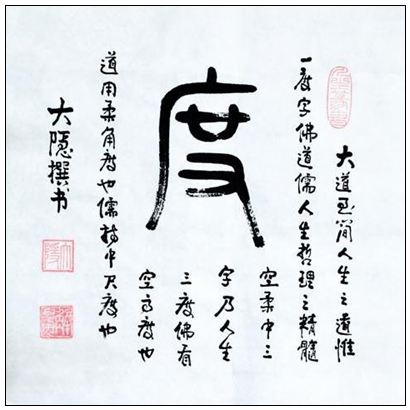 度
大道至简人生之道惟
一度字佛道儒人生哲理之精髓
空柔中三
字乃人生
三度佛看
空高度也
道用柔角度也儒持中尺度也
大隐撰书